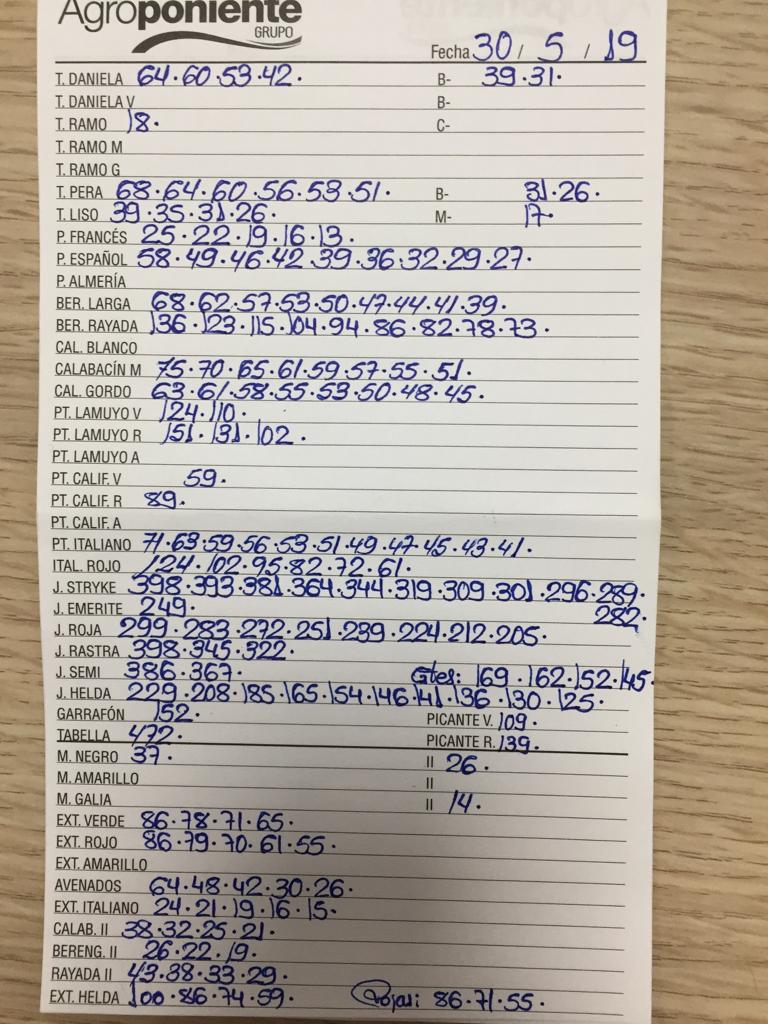 Agroponiente
GRUPO
Fecha 30 / 5 / 19
T. DANIELA 64·60·53·42· B- 39·31·
T. DANELA V B-
T. RAMO 18· C-
T. RAMO M
T. RAMO G
T. PERA 68·64·60·56·53·51· B- 31·26·
T. LISO 39·35·31·26· M- 17·
P. FRANCÉS 25·22·19·16·13·
P. ESPAÑOL 58·49·46·42·39·36·32·29·27·
P. ALMERÍA
BER. LARGA 68·62·57·53·50·47·44·41·39·
BER. RAYADA 136·123·115·104·94·86·82·78·73·
CAL. BLANCO
CALABACÍN M 75·70·65·61·59·57·55·51·
CAL. GORDO 63·61·58·55·53·50·48·45·
PT. LAMUYO V 124·110·
PT. LAMUYO R 151·131·102·
PT. LAMUYO A
PT. CALIF. V 59·
PT. CALIF. R 89·
PT. CALIF. A
PT. ITALIANO 71·63·59·56·53·51·49·47·45·43·41·
ITAL. ROJO 124·102·95·82·72·61·
J. STRYKE 398·393·381·364·344·319·309·301·296·289·
J. EMERITE 249· 282·
J. ROJA 299·283·272·251·239·224·212·205·
J. RASTRA 398·345·322·
J. SEMI 386·367· Gtes: 169·162·152·145·
J. HELDA 229·208·185·165·154·146·141·136·130·125·
GARRAFÓN 152· PICANTE V. 109·
TABELLA 472· PICANTE R. 139·
M. NEGRO 37· II 26·
M. AMARILLO II
M. GALIA II 14·
EXT. VERDE 86·78·71·65·
EXT. ROJO 86·79·70·61·55·
EXT. AMARILLO
AVENADOS 64·48·42·30·26·
EXT. ITALIANO 24·21·19·16·15·
CALAB. II 38·32·25·21·
BERENG. II 26·22·19·
RAYADA II 43·38·33·29·
EXT. HELDA 100·86·74·59· Rojas: 86·71·55·